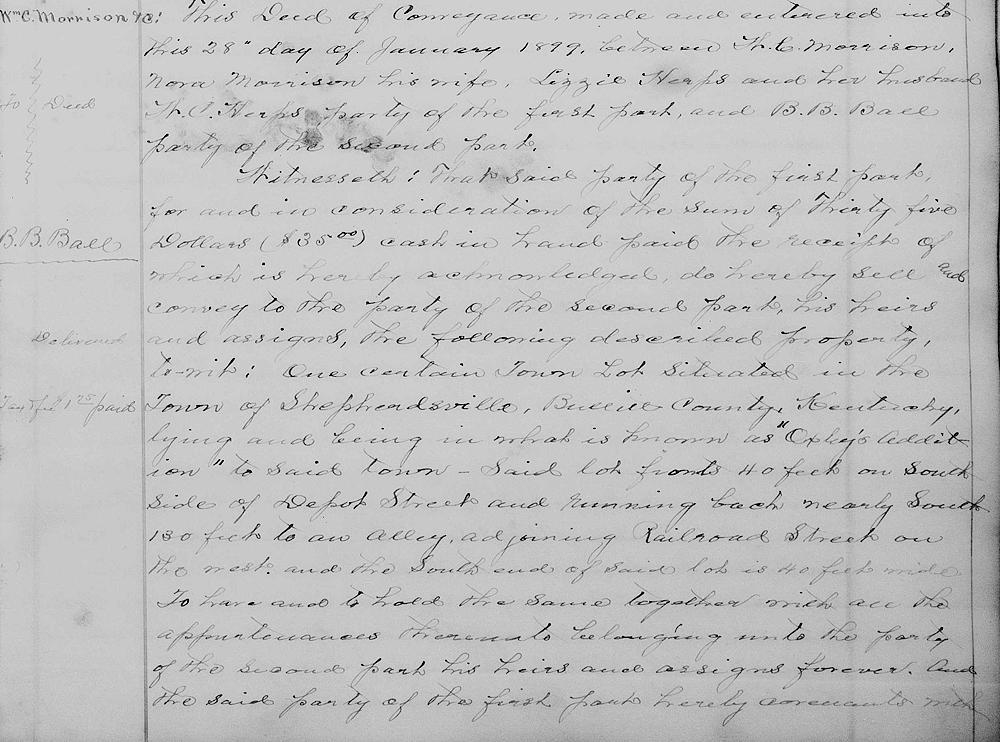 Wm C. Morrison &c.
To Deed
B. B. Ball
Delivered
Tax & fee 1 75 paid
This Deed of Conveyance, made and entered into
this 28" day of January 1899, between W. C. Morrison,
Nora Morrison his wife, Lizzie Herps and her husband
W. P. Herps party of the first part, and B. B. Ball
party of the second part.
Witnesseth: That said party of the first part,
for and in consideration of the sum of Thirty five
Dollars ($35 00) cash in hand paid the receipt of
which is hereby acknowledged, do hereby sell and
convey to the party of the second part, his heirs
and assigns, the following described property,
to-wit: One certain Town Lot situated in the
Town of Shepherdsville, Bullitt County, Kentucky,
lying and being in what is known as "Oxley's Addit-
ion" to said town - Said lot fronts 40 feet on South
side of Depot Street and running back nearly South
130 feet to an Alley, adjoining Railroad Street on
the west. and the South end of said lot is 40 feet wide
To have and to hold the same together with all the
appurtenances thereunto belonging unto the party
of the second part his heirs and assigns forever. And
the said party of the first part hereby covenants with